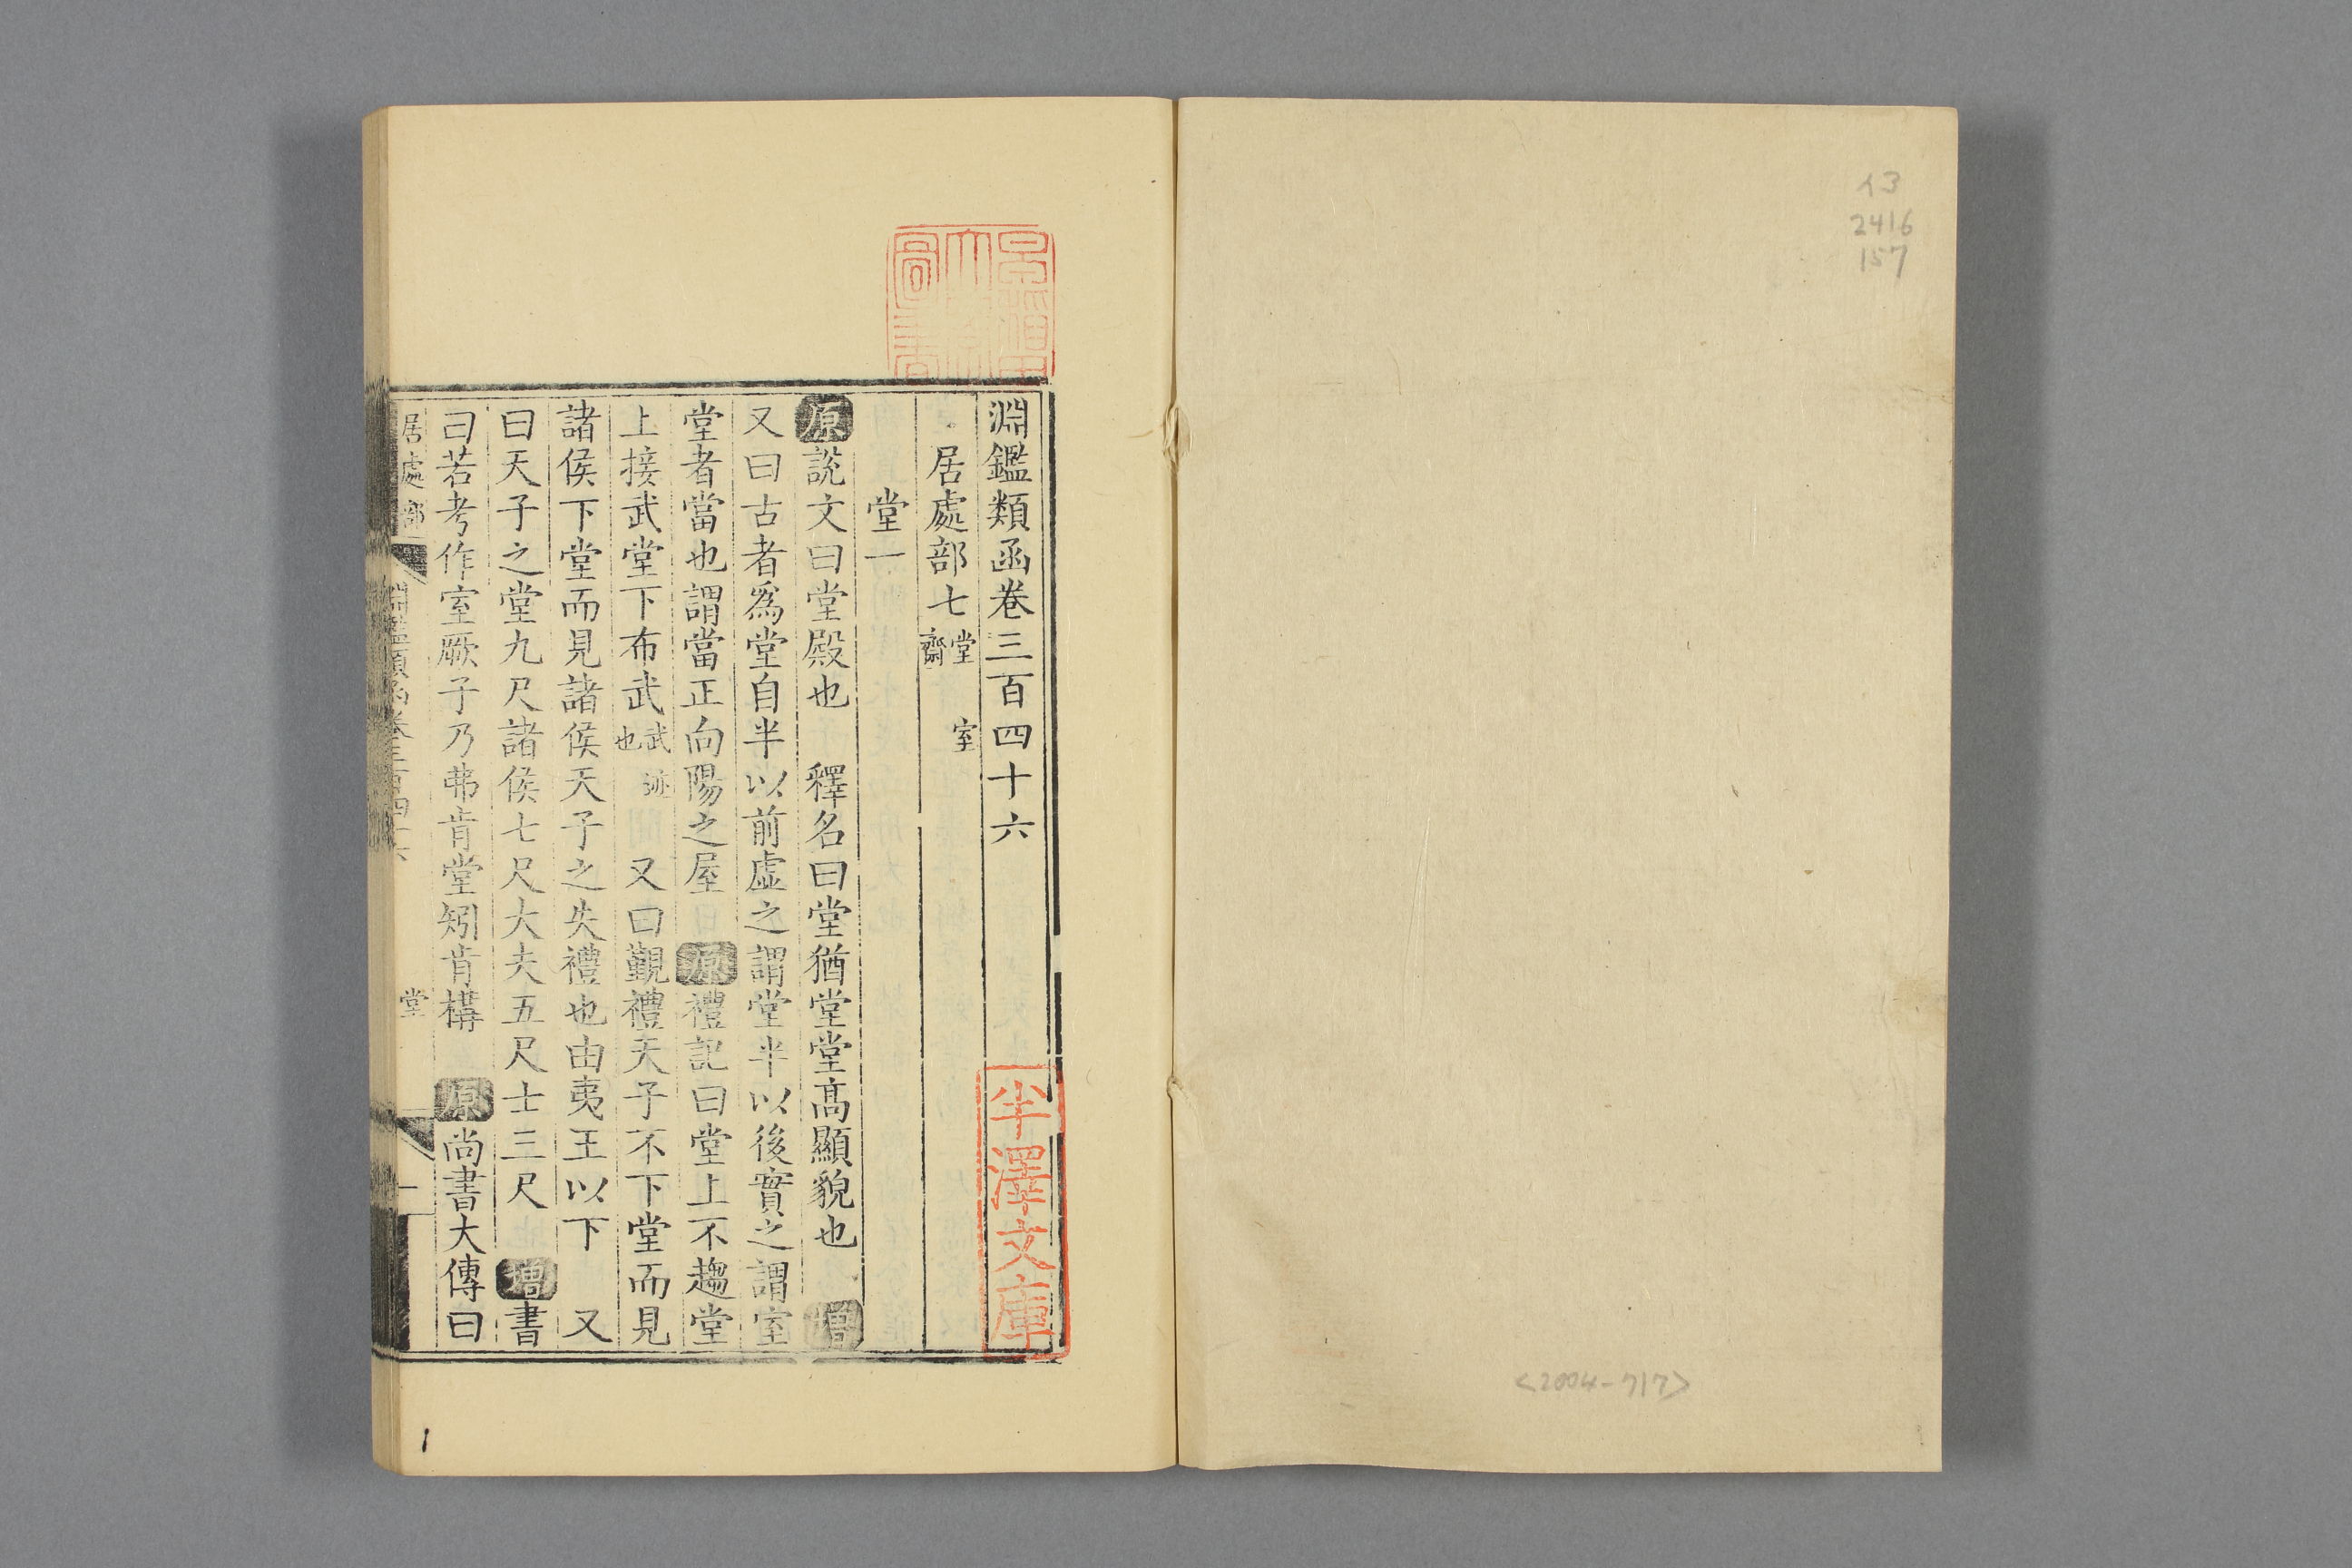 イ3
2416
157
<2004-717>
淵鑑類函卷三百四十六
居處部七 堂 室 齋
堂一
原說文曰堂殿也 釋名曰堂猶堂堂高顯貌也 增
又曰古者爲堂自半以前虛之謂堂半以後實之謂室
堂者當也謂當正向陽之屋 原禮記曰堂上不趨堂
上接武堂下布武武迹也 又曰覲禮天子不下堂而見
諸侯下堂而見諸侯天子之失禮也由夷王以下 又
曰天子之堂九尺諸侯七尺大夫五尺士三尺 增書
曰若考作室厥子乃弗肯堂矧肯構 原尚書大傳曰
居處部 淵鑑類函卷三百四十六 堂 一
半澤文庫
早稻田大學圖書
1